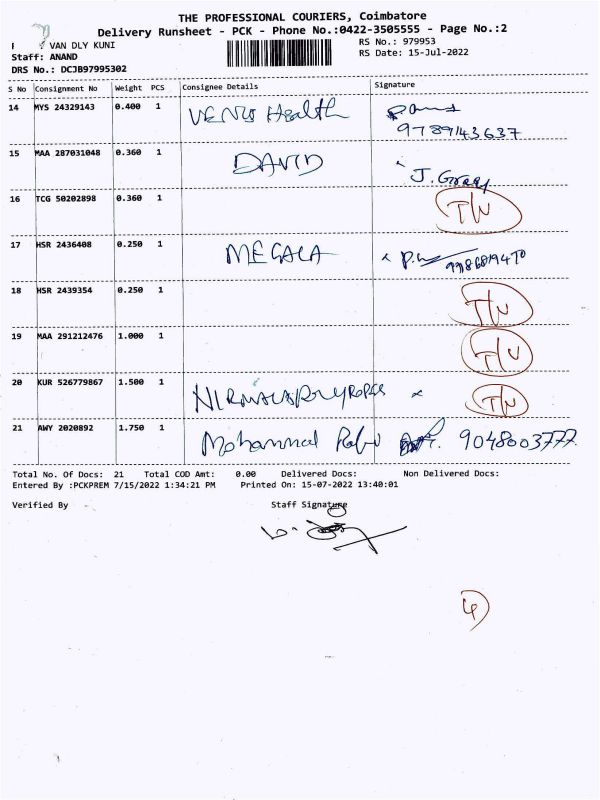 THE PROFESSIONAL COURIERS, Coimbatore
Delivery Runsheet - PCK - Phone No.:0422-3505555 - Page No.:2
VAN DLY KUNI
RS No.: 979953
Staff: ANAND
RS Date: 15-Jul-2022
DRS No.: DCJB97995302
S No Consignment No Weight PCS Consignee Details Signature
14 MYS 24329143 0.400 1 VENUS Health
9789143637
15 MAA 287031048 0.360 1 DAVID J.
16 TCG 50202898 0.360 1 T/N
17 HSR 2436408 0.250 1 MEGALA
18 HSR 2439354 0.250 1 T/N
19 MAA 291212476 1.000 1 T/N
20 KUR 526779867 1.500 1 T/N
21 AWY 2020892 1.750 1 Mohammad 9048003777
Total No. Of Docs: 21 Total COD Amt: 0.00 Delivered Docs: Non Delivered Docs:
Entered By :PCKPREM 7/15/2022 1:34:21 PM Printed On: 15-07-2022 13:40:01
Verified By Staff Signature
4